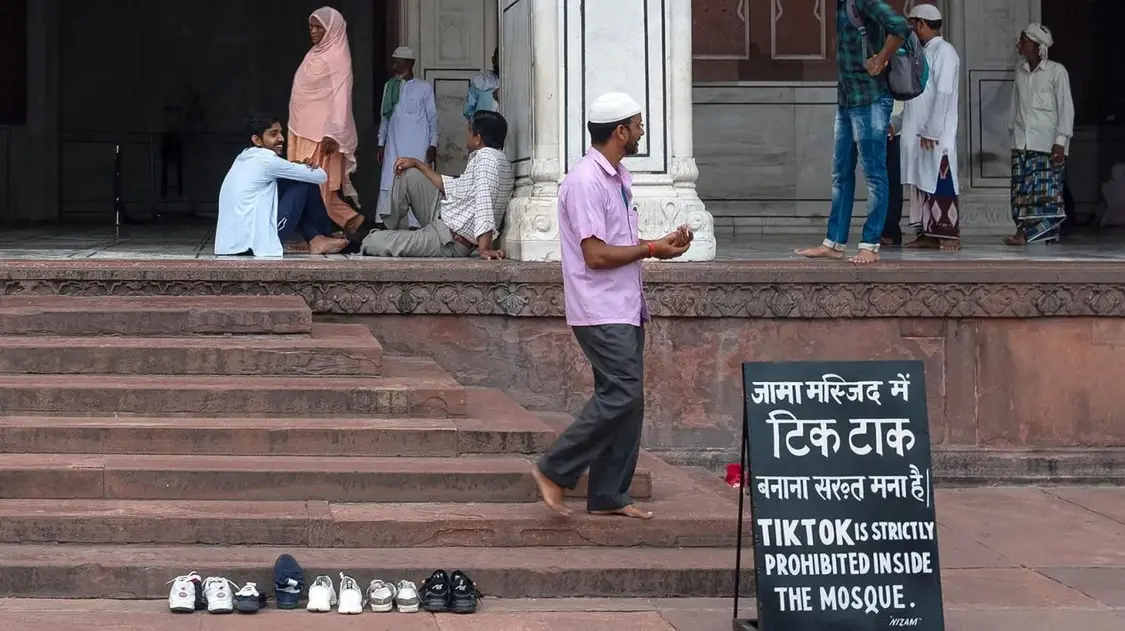 जामा मस्जिद में
टिक टाक
बनाना सख़्त मना है।
TIKTOK IS STRICTLY
PROHIBITED INSIDE
THE MOSQUE.
"NIZAM"